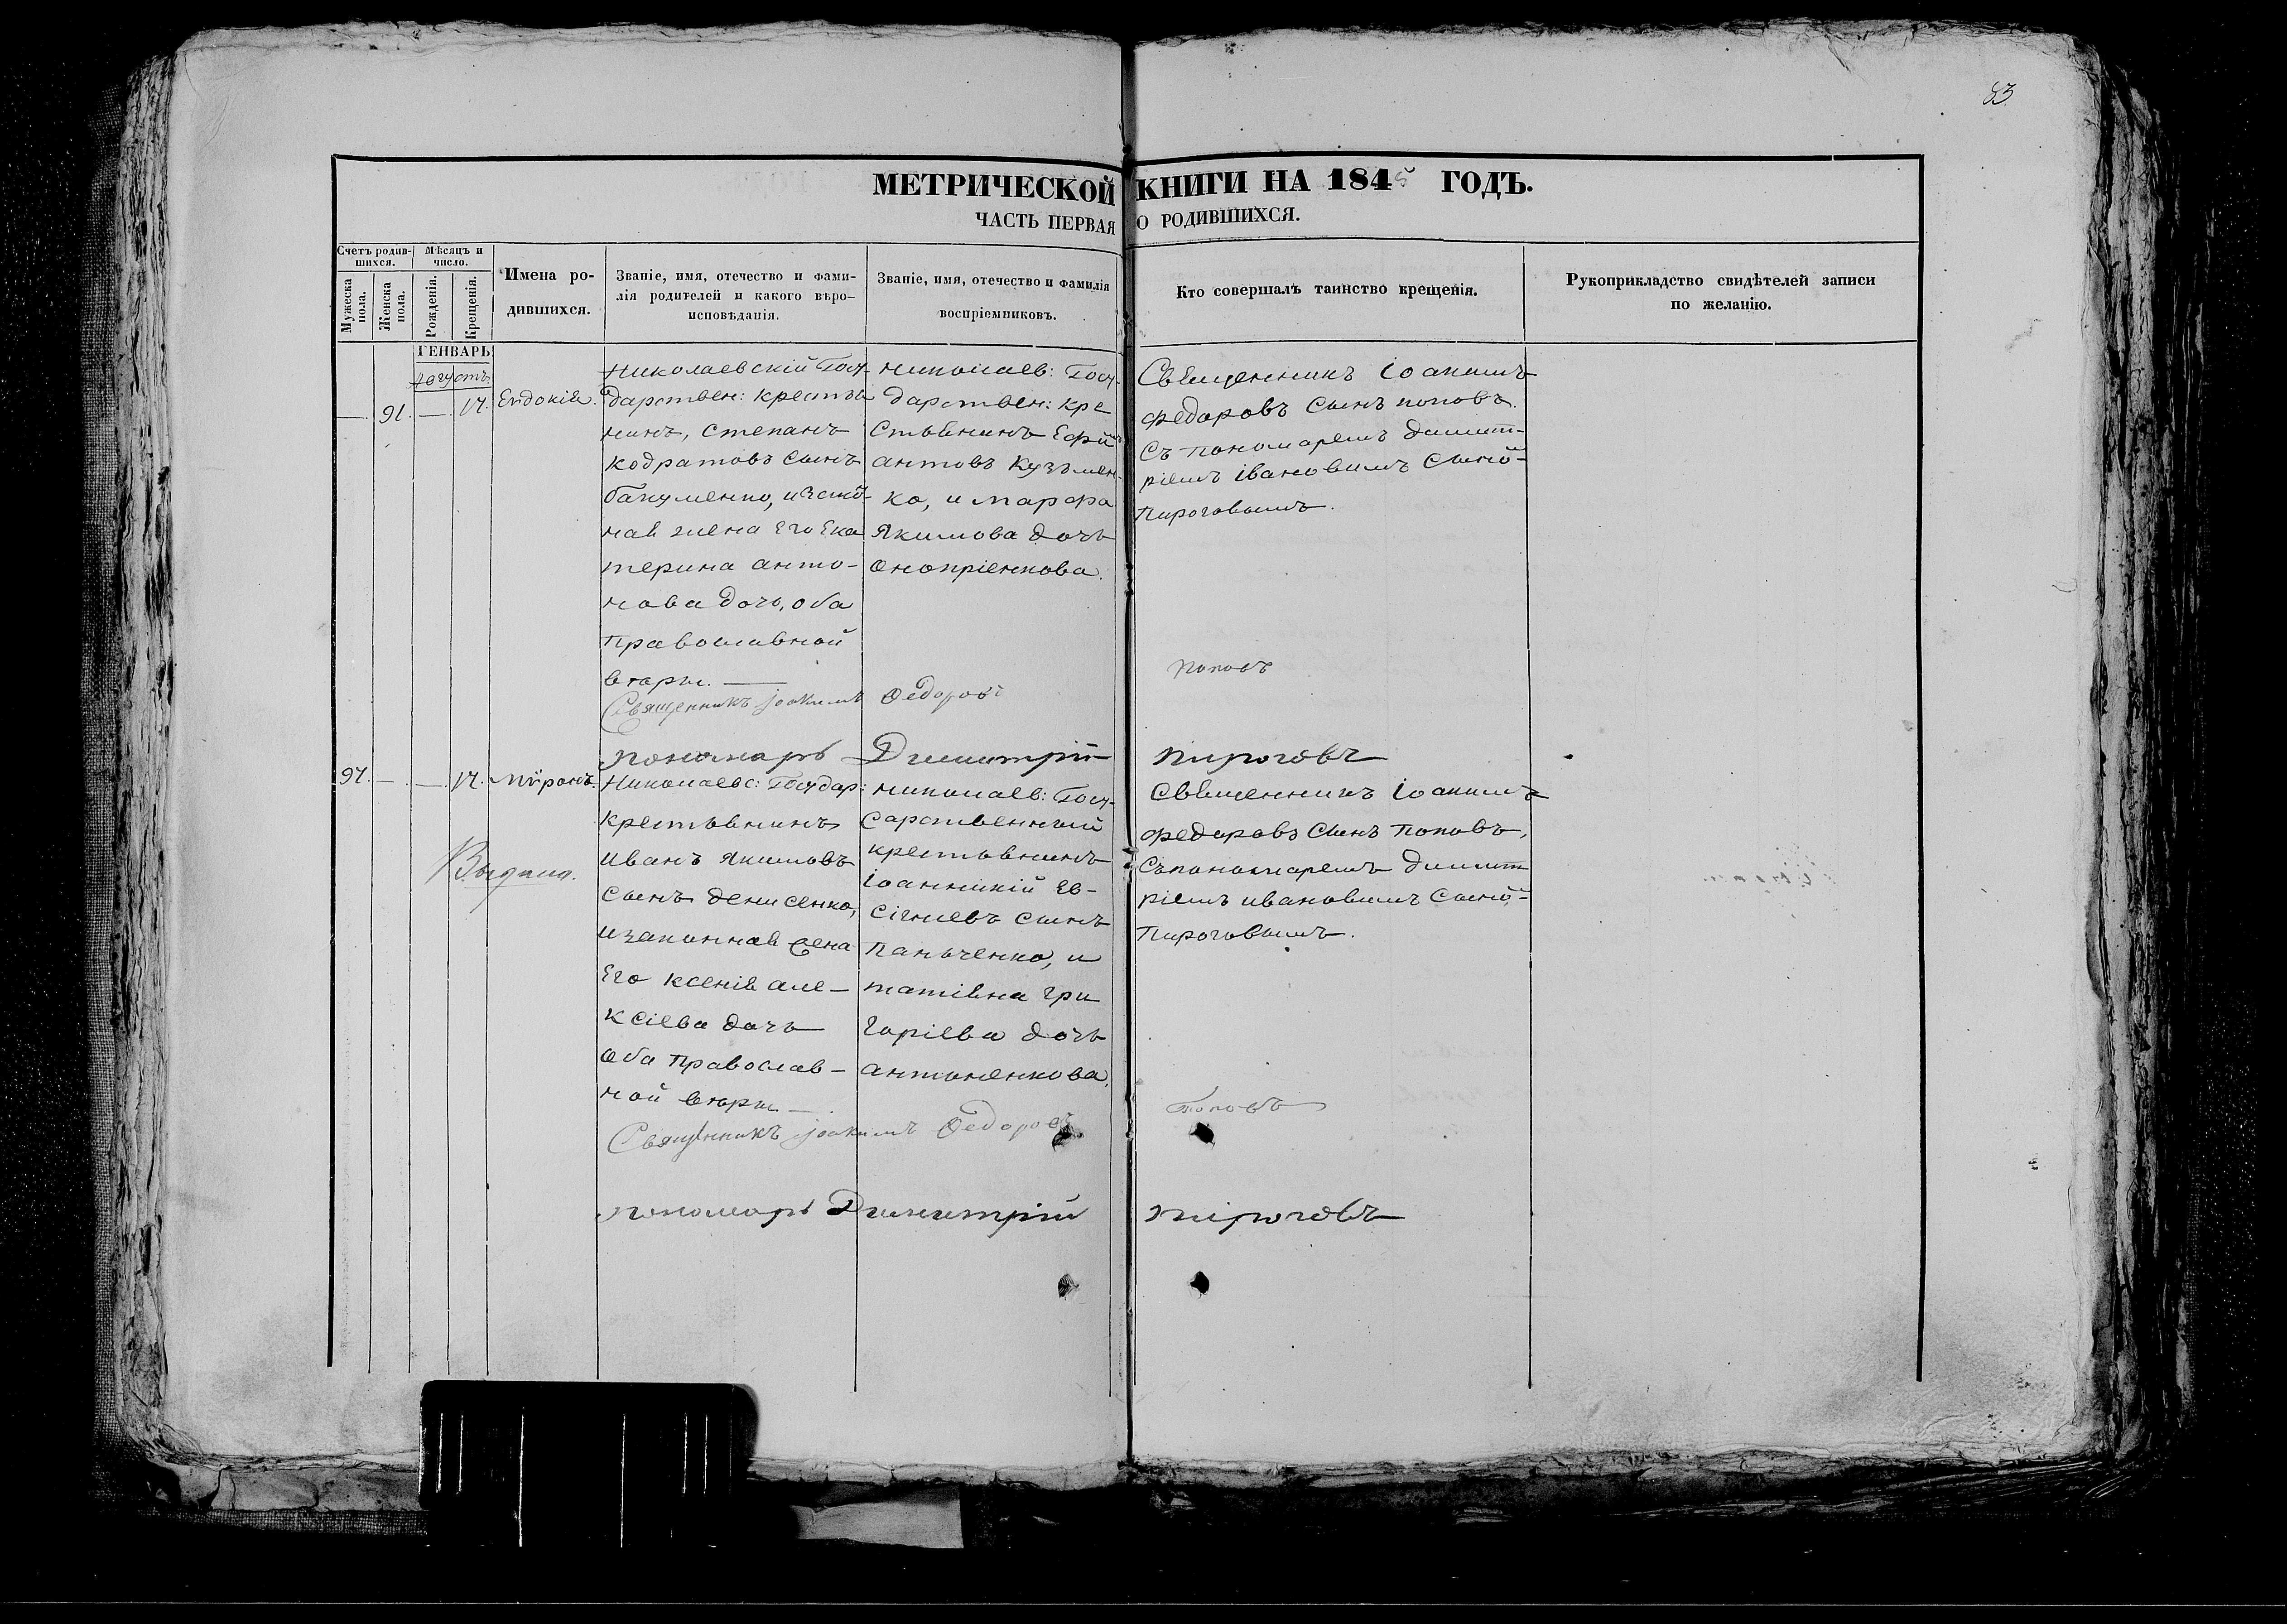 83
МЕТРИЧЕСКОЙ КНИГИ НА 1845 ГОДЪ.
ЧАСТЬ ПЕРВАЯ О РОДИВШИХСЯ.
Счетъ родив-
шихся.
Мужеска
пола.
Женска
пола.
Мѣсяцъ и
число.
Рожденія.
Крещенія.
Имена ро-
дившихся.
Званіе, имя, отечество и фами-
лія родителей и какого вѣро-
исповѣданія.
Званіе, имя, отечество и фамилія
воспріемниковъ.
Кто совершалъ таинство крещенія.
Рукоприкладство свидѣтелей записи
по желанію.
ГЕНВАРЬ
Августъ
— 91. — 17. Евдокія.
Николаевскій Госу-
дарствен: крестья
нинъ, Степанъ
Кодратовъ сынъ
бакуменко, изакон-
ная жена Его Ека
терина анто-
нова дочь, оба
православной
вѣры. —
николаев: Госу-
дарствен: кре
стьянинъ Ефим
антовъ Кузьмен-
ко, и марфа
Якимова дочь
Оноприенкова.
Священникъ Іоакимъ
федоровъ сынъ поповъ.
Съ пономаремъ димит-
ріемъ івановымъ сыно-
Пироговымъ.
Священникъ Іоакимъ Федоровъ Поповъ
пономарь Димитрій Пироговъ
97. — — 17. Мѵронъ.
Выдана.
Николаевс: Государ:
крестьянинъ
Иванъ Якимовъ
сынъ денисенко,
изаконная жена
Его Ксенія але-
ксіева дочь
Оба православ-
ной вѣры —
николаев: Госу-
дарственный
крестьянинъ
іоанникій Ев-
сігнѣевъ сынъ
паньченко, и
татіяна гри
горіева дочь
антоненкова.
Священникъ Іоакимъ
федоровъ сынъ поповъ,
Съпономаремъ димит
ріемъ ивановымъ сыно-
Пироговымъ.
Священникъ Іоакимъ Федоровъ Поповъ
пономарь Димитрій Пироговъ